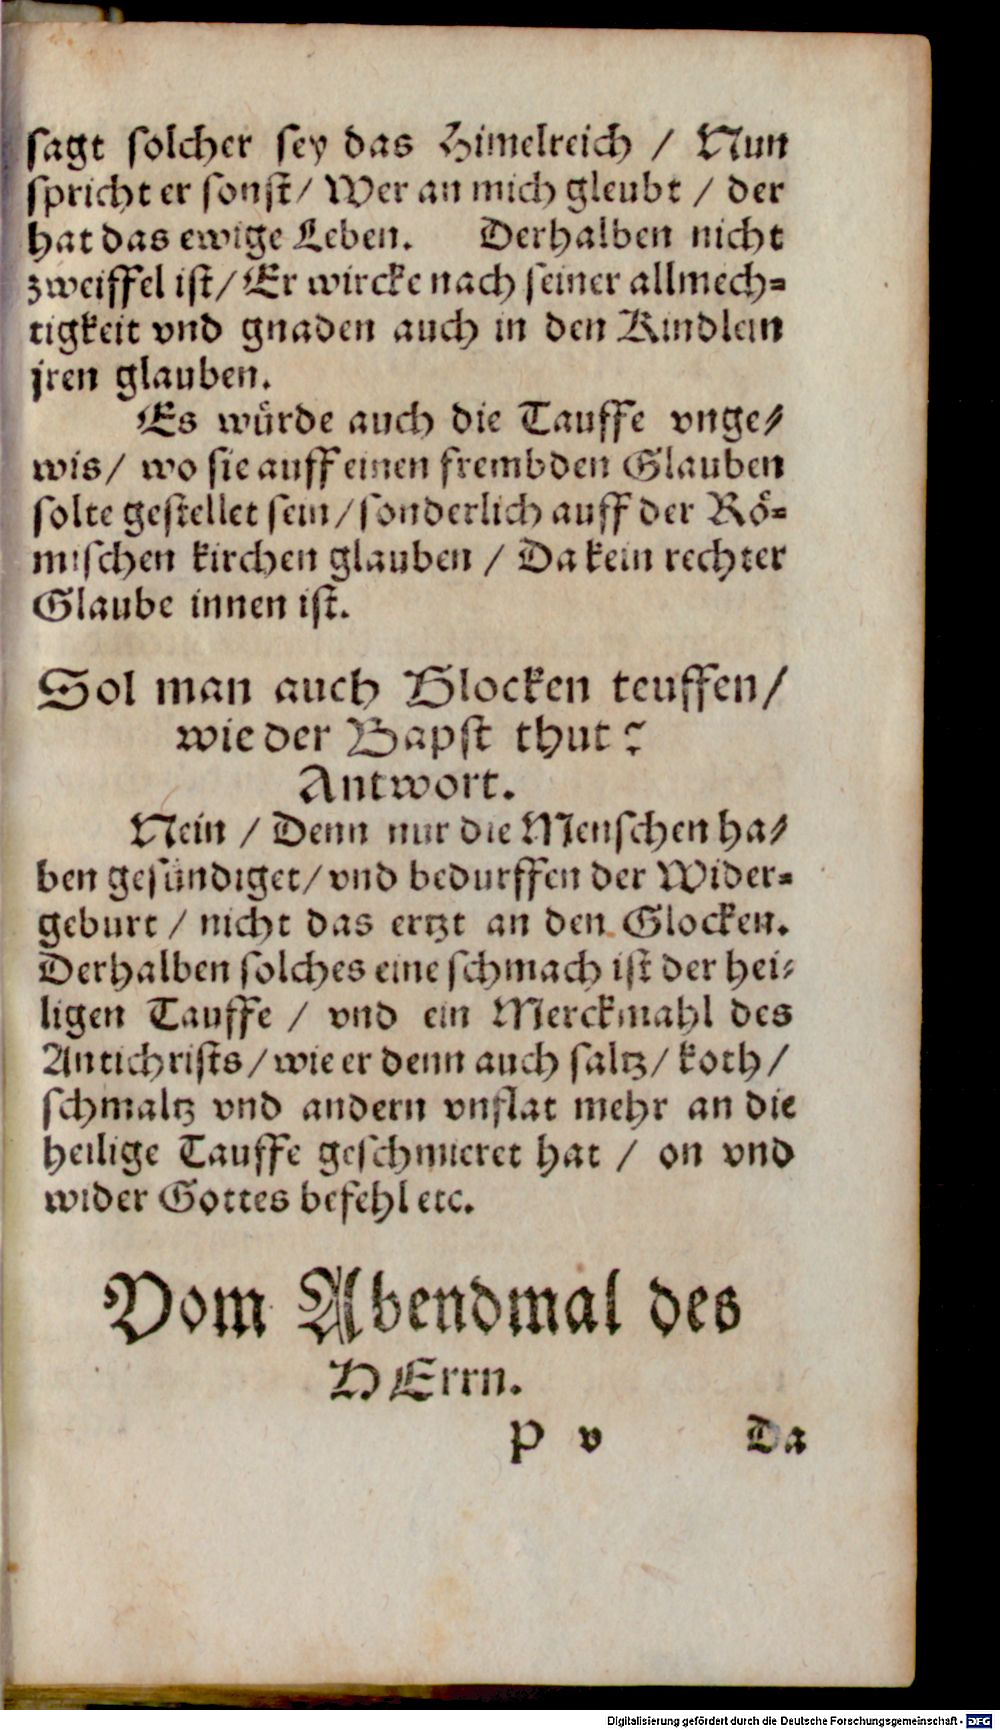 sagt solcher sey das Himelreich / Nun
spricht er sonst / Wer an mich gleubt / der
hat das ewige Leben. Derhalben nicht
zweiffel ist / Er wircke nach seiner allmech=
tigkeit vnd gnaden auch in den Kindlein
jren glauben.
Es würde auch die Tauffe vnge=
wis / wo sie auff einen frembden Glauben
solte gestellet sein / sonderlich auff der Rö=
mischen kirchen glauben / Da kein rechter
Glaube innen ist.
Sol man auch Glocken teuffen /
wie der Bapst thut?
Antwort.
Nein / Denn nur die Menschen ha=
ben gesündiget / vnd bedürffen der Wider=
geburt / nicht das ertzt an den Glocken.
Derhalben solches eine schmach ist der hei=
ligen Tauffe / vnd ein Merckmahl des
Antichrists / wie er denn auch saltz / koth /
schmaltz vnd andern vnflat mehr an die
heilige Tauffe geschmieret hat / on vnd
wider Gottes befehl etc.
Vom Abendmal des
HErrn.
P v Da
Digitalisierung gefördert durch die Deutsche Forschungsgemeinschaft - DFG